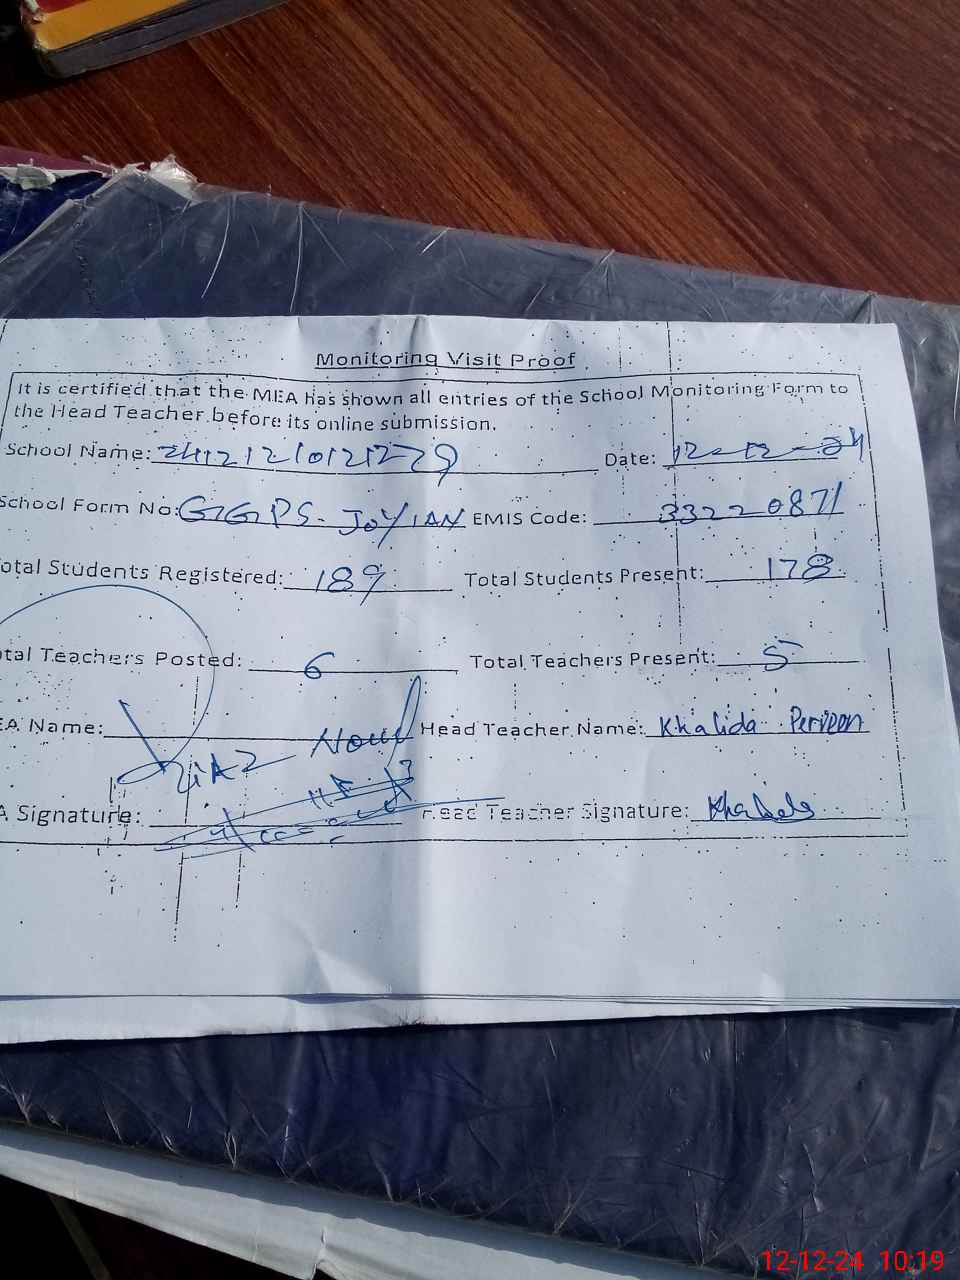 Monitoring Visit Proof
It is certified that the MEA has shown all entries of the School Monitoring Form to
the Head Teacher before its online submission.
School Name: Date: 12-12-24
School Form No: GGPS. JOYIAN EMIS Code: 33220871
otal Students Registered: 189 Total Students Present: 178
otal Teachers Posted: 6 Total Teachers Present: 5
EA Name: Head Teacher Name: Khalida Perveen
A Signature: Head Teacher Signature: Khalida
12-12-24 10:19